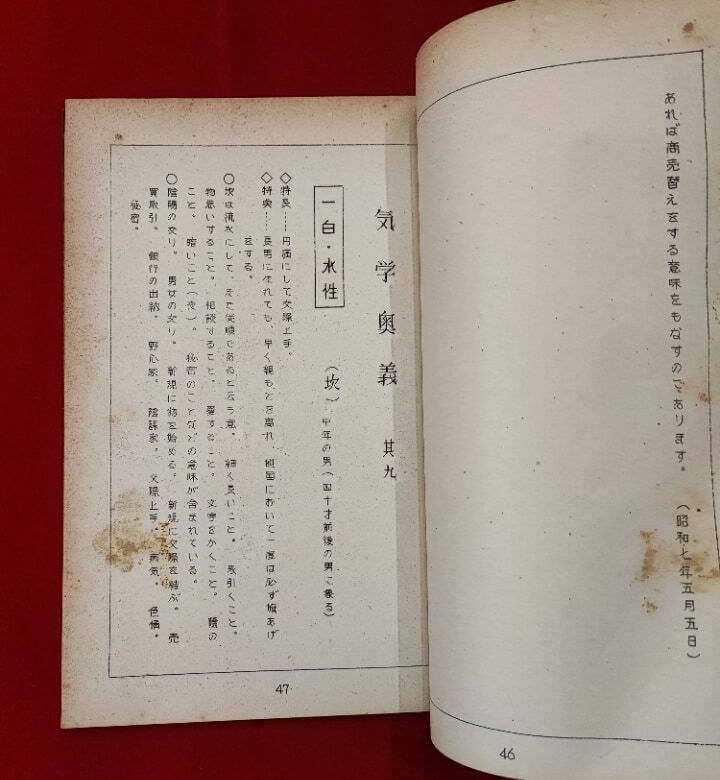 あれば商売替えをする意味をもなすのであります。
(昭和七年五月五日)
46
気学奥義 其九
一白・水性 (坎) 中年の男(四十才前後の男に象る)
◇特長……円満にして交際上手。
◇特長……長男に生れても、早く親もとを離れ、他国において一度は必ず旗あげ
をする。
○坎は流水にして、また従順であると云う意。 細く長いこと。 永引くこと。
物思いすること。 相談すること。 愛すること。 文字をかくこと。 陰の
こと。 暗いこと(夜)。 秘密のことなどの意味が含まれている。
○陰陽の交り。 男女の交り。 新規に物を始める。 新規に交際を結ぶ。 売
買取引。 銀行の出納。 野心家。 陰謀家。 交際上手。 病気。 色情。
秘密。
47